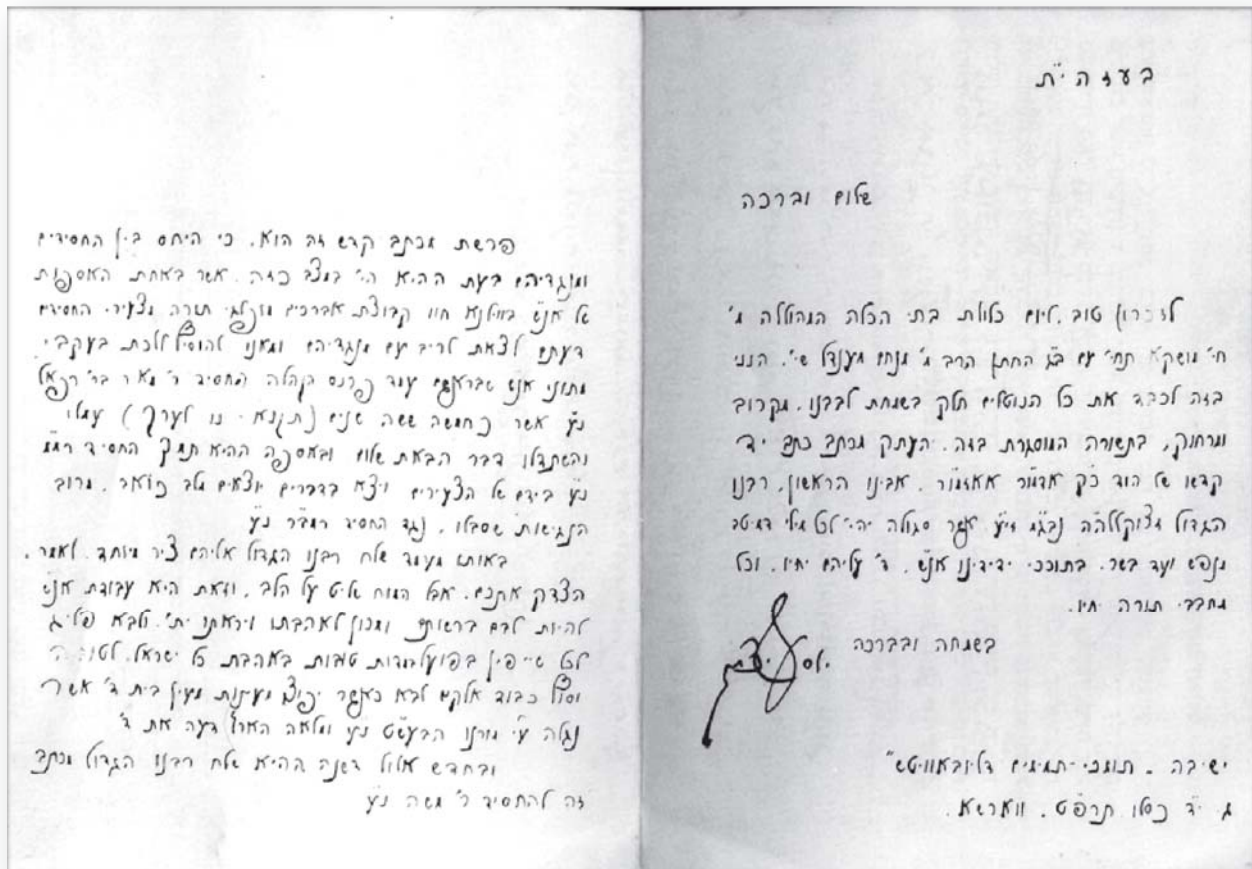 בעזה"ית
שלום וברכה
לזכרון טוב, ליום כלולת בתי הכלה המהוללה מ'
חי' מושקא תחי' עם ב"ג החתן הרב מ' מנחם מענדל שי', הנני
בזה לכבד את כל הנוטלים חלק בשמחת לבבנו, מקרוב
ומרחוק, בתשורה המוסגרת בזה, העתק מכתב כתב יד
קדשו של הוד כ"ק אדמו"ר אאזמו"ר, אבינו הראשון, רבנו
הגדול מצוקללה"ה נבג"מ זי"ע אשר סגולה יהי' לכל מילי דמיטב
מנפש ועד בשר, בתוככי ידידינו אנ"ש, ד' עליהם יחיו, וכל
מחבבי תורה יחיו.
בשמחה ובברכה
ישיבה "תומכי-תמימים דליובאוויטש"
ג' י"ד כסלו תרפ"ט, ווארשא.
פרשת מכתב קדש זה הוא, כי היחס בין החסידים
ומנגדיהם בעת ההיא הי' במצב כזה, אשר באחת האספות
של אנ"ש בווילנא חוו קבוצת אברכים מופלגי תורה מצעירי החסידים
דעתם לצאת לריב עם מנגדיהם ומאנו להוסיף ללכת בעקבי
מתוני אנ"ש שבראשם עמד פרנס הקהלה החסיד ר' מאיר בר' רפאל
נ"ע אשר כחמשה ששה שנים (תקנ"א - נז לערך) עמלו
והשתדלו דבר הבאת שלום ובאספה ההיא תמך החסיד רמ"מ
נ"ע בידם של הצעירים ויצא בדברים יוצאים מלב כואב, מרוב
הנגישות שסבלו, נגד החסיד רמב"ר נ"ע
באותו מעמד שלח רבנו הגדול אליהם ציר מיוחד, לאמר,
הצדק אתכם, אבל המוח שליט על הלב, וזאת היא עבודת אנ"ש
להיות לבם ברשותם ומכון לאהבתו ויראתו ית', ולבא פליג
לכל שייפין בפועל במדות טובות באהבת כל ישראל, לטובה
וסוף כבוד אלקים לבא כאשר יפוצו מעינות מעין בית ד' אשר
נגלה ע"י מורנו הבעש"ט נ"ע ומלאה הארץ דעה את ד'
ובחדש אלול דשנה ההיא שלח רבנו הגדול מכתב
זה להחסיד ר' משה נ"ע